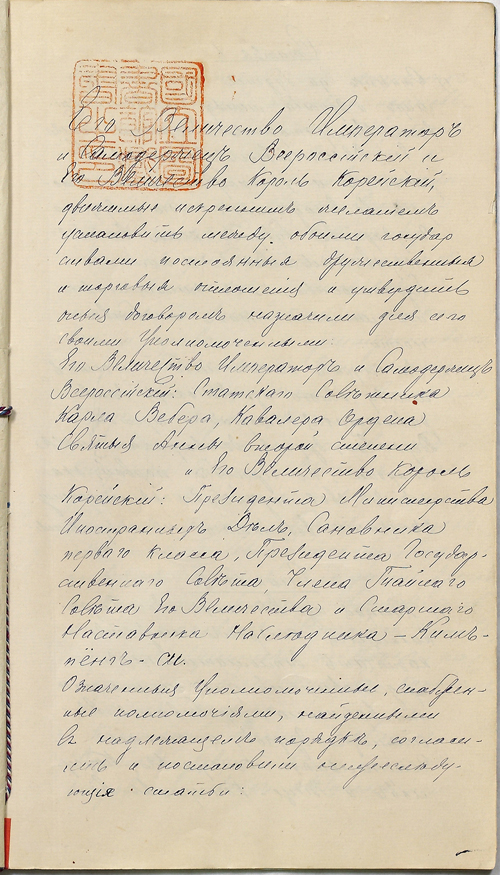 Его Величество Императоръ
и Самодержецъ Всероссiйскiй и
Его Величество Король Корейскiй,
движимые искреннимъ желанiемъ
установить между обоими государ
ствами постоянныя дружественныя
и торговыя отношенiя и утвердить
оныя договоромъ назначили для сего
своими Уполномоченными:
Его Величество Императоръ и Самодержецъ
Всероссiйскiй: Статскаго Совѣтника
Карла Вебера, Кавалера Ордена
Святыя Анны второй степени
и Его Величество Король
Корейскiй: Президента Министерства
Иностранныхъ Дѣлъ, Сановника
перваго класса, Президента Государ-
ственнаго Совѣта, Члена Тайнаго
Совѣта Его Величества и Старшаго
Наставника Наблюдника – Кимъ-
пёнгъ-си.
Означенные Уполномоченные, снабжен-
ные полномочiями, найденными
въ надлежащемъ порядкѣ, согласи-
лись и постановили нижеслѣду-
ющiя статьи: